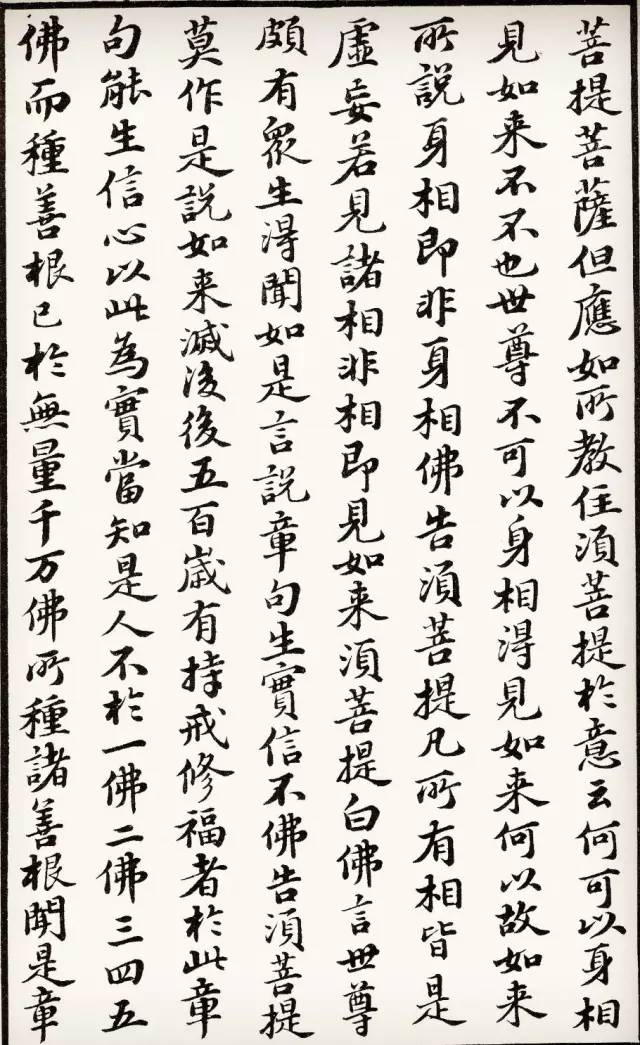 菩提菩薩但應如所教住須菩提於意云何可以身相
見如来不不也世尊不可以身相得見如来何以故如来
所説身相即非身相佛告須菩提凡所有相皆是
虛妄若見諸相非相即見如来須菩提白佛言世尊
頗有眾生得聞如是言説章句生實信不佛告須菩提
莫作是説如来滅後後五百歲有持戒修福者於此章
句能生信心以此為實當知是人不於一佛二佛三四五
佛而種善根已於無量千万佛所種諸善根聞是章